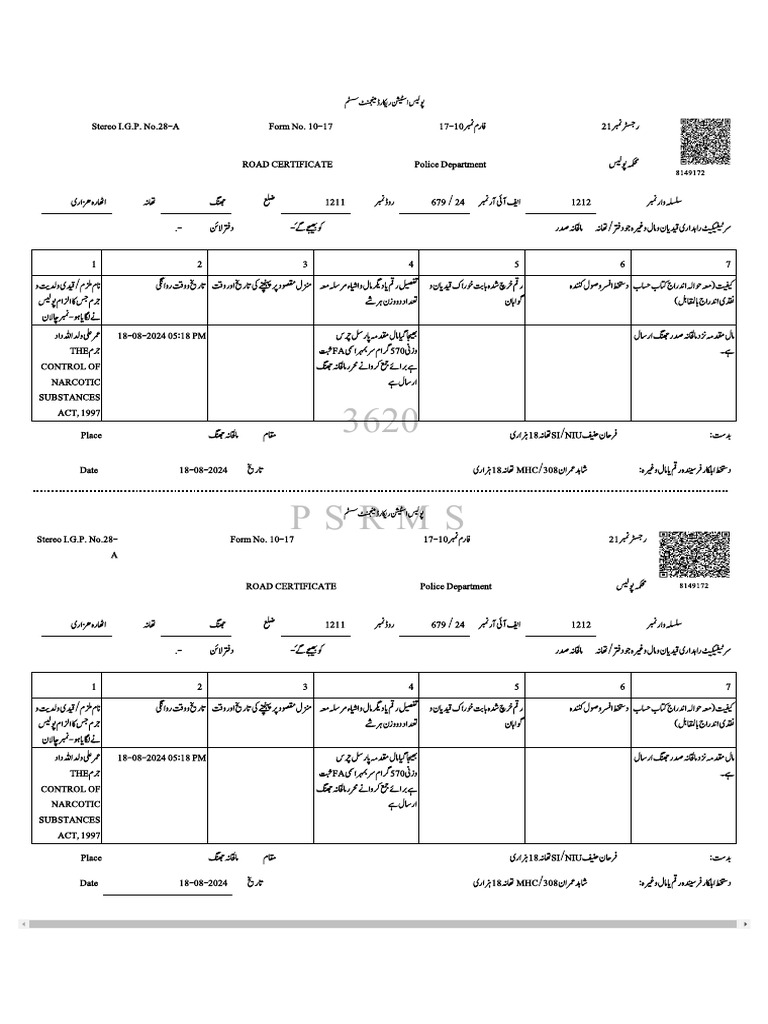 پولیس اسٹیشن ریکارڈ مینجمنٹ سسٹم
رجسٹر نمبر 21 فارم نمبر 10-17 Form No. 10-17 Stereo I.G.P. No.28-A
محکمہ پولیس Police Department ROAD CERTIFICATE
8149172
سلسلہ وار نمبر 1212 ایف آئی آر نمبر 24 / 679 روڈ نمبر 1211 ضلع جھنگ تھانہ اٹھارہ ھزاری
سرٹیفیکیٹ راہداری قیدیان ومال وغیرہ جو دفتر/تھانہ مالخانہ صدر کو بھیجے گئے- دفتر لائن -.
1 2 3 4 5 6 7
نام ملزم/قیدی ولدیت و جرم جس کا الزام پولیس نے لگایا ہو-نمبر چالان
تاریخ ووقت روانگی
منزل مقصود پر پہنچنے کی تاریخ اور وقت
تفصیل رقم یا دیگر مال واشیاء مرسلہ معہ تعداد و وزن ہر شے
رقم خرچ شدہ بابت خوراک قیدیان و گواہان
دستخط افسر وصول کنندہ
کیفیت (معہ حوالہ اندراج کتاب حساب نقدی اندراج بالمقابل)
عمر علی ولد اللہ داد
جرم THE
CONTROL OF
NARCOTIC
SUBSTANCES
ACT, 1997
18-08-2024 05:18 PM
بھیجا گیا مال مقدمہ پارسل چرس
وزنی 570 گرام سر بمہر اسمی FA ثبت
ہے برائے جمع کروانے محرر مالخانہ جھنگ
ارسال ہے
مال مقدمہ نزد مالخانہ صدر جھنگ ارسال
ہے۔
3620
بدست: فرحان حنیف SI/NIU تھانہ 18 ہزاری مقام مالخانہ جھنگ Place
دستخط اہلکار فرسیندہ رقم یا مال وغیرہ: شاہد عمران 308/MHC تھانہ 18 ہزاری تاریخ 18-08-2024 Date
P S R M S
پولیس اسٹیشن ریکارڈ مینجمنٹ سسٹم
رجسٹر نمبر 21 فارم نمبر 10-17 Form No. 10-17 Stereo I.G.P. No.28-
A
محکمہ پولیس Police Department ROAD CERTIFICATE
8149172
سلسلہ وار نمبر 1212 ایف آئی آر نمبر 24 / 679 روڈ نمبر 1211 ضلع جھنگ تھانہ اٹھارہ ھزاری
سرٹیفیکیٹ راہداری قیدیان ومال وغیرہ جو دفتر/تھانہ مالخانہ صدر کو بھیجے گئے- دفتر لائن -.
1 2 3 4 5 6 7
نام ملزم/قیدی ولدیت و جرم جس کا الزام پولیس نے لگایا ہو-نمبر چالان
تاریخ ووقت روانگی
منزل مقصود پر پہنچنے کی تاریخ اور وقت
تفصیل رقم یا دیگر مال واشیاء مرسلہ معہ تعداد و وزن ہر شے
رقم خرچ شدہ بابت خوراک قیدیان و گواہان
دستخط افسر وصول کنندہ
کیفیت (معہ حوالہ اندراج کتاب حساب نقدی اندراج بالمقابل)
عمر علی ولد اللہ داد
جرم THE
CONTROL OF
NARCOTIC
SUBSTANCES
ACT, 1997
18-08-2024 05:18 PM
بھیجا گیا مال مقدمہ پارسل چرس
وزنی 570 گرام سر بمہر اسمی FA ثبت
ہے برائے جمع کروانے محرر مالخانہ جھنگ
ارسال ہے
مال مقدمہ نزد مالخانہ صدر جھنگ ارسال
ہے۔
بدست: فرحان حنیف SI/NIU تھانہ 18 ہزاری مقام مالخانہ جھنگ Place
دستخط اہلکار فرسیندہ رقم یا مال وغیرہ: شاہد عمران 308/MHC تھانہ 18 ہزاری تاریخ 18-08-2024 Date